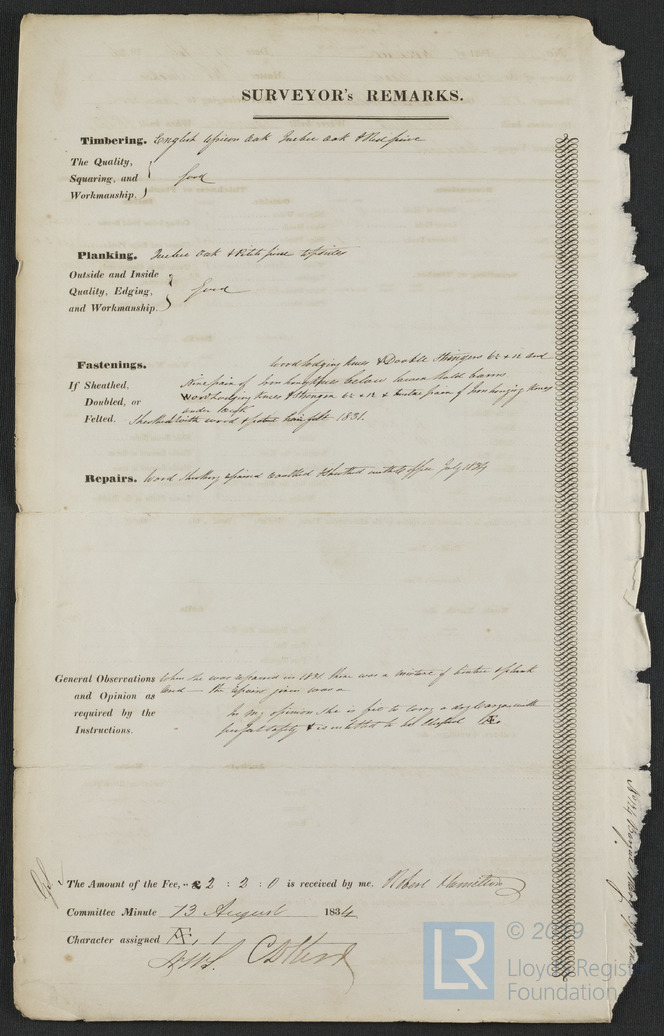 SURVEYOR's REMARKS.
Timbering. English African Oak Quebec Oak & Red pine
The Quality,
Squaring, and
Workmanship.
Good
Planking. Quebec Oak & pine topsides
Outside and Inside
Quality, Edging,
and Workmanship.
Good
Fastenings. Wood lodging knees & Double Stringers 6½ & 12 and
If Sheathed,
Doubled, or
Felted.
Nine pair of Iron hanging knees below lower hold beams
Wood Lodging knees & Stringer 6½ & 12 & pair of Iron hanging knees
under
Sheathed with wood & patent hair felt 1831.
Repairs. Wood Sheathing repaired caulked & July 1834
General Observations
and Opinion as
required by the
Instructions.
When she was repaired in 1831 there was a mixture of timber & plank
and — the repairs given was a
In my opinion she is fit to carry a dry cargo with
perfect safety & is intitled to be Classed Æ
The Amount of the Fee, 2 : 2 : 0 is received by me. Robert Hamilton
Committee Minute 13 August 1834
Character assigned Æ 1
© 2019
LR
Lloyd's Register
Foundation